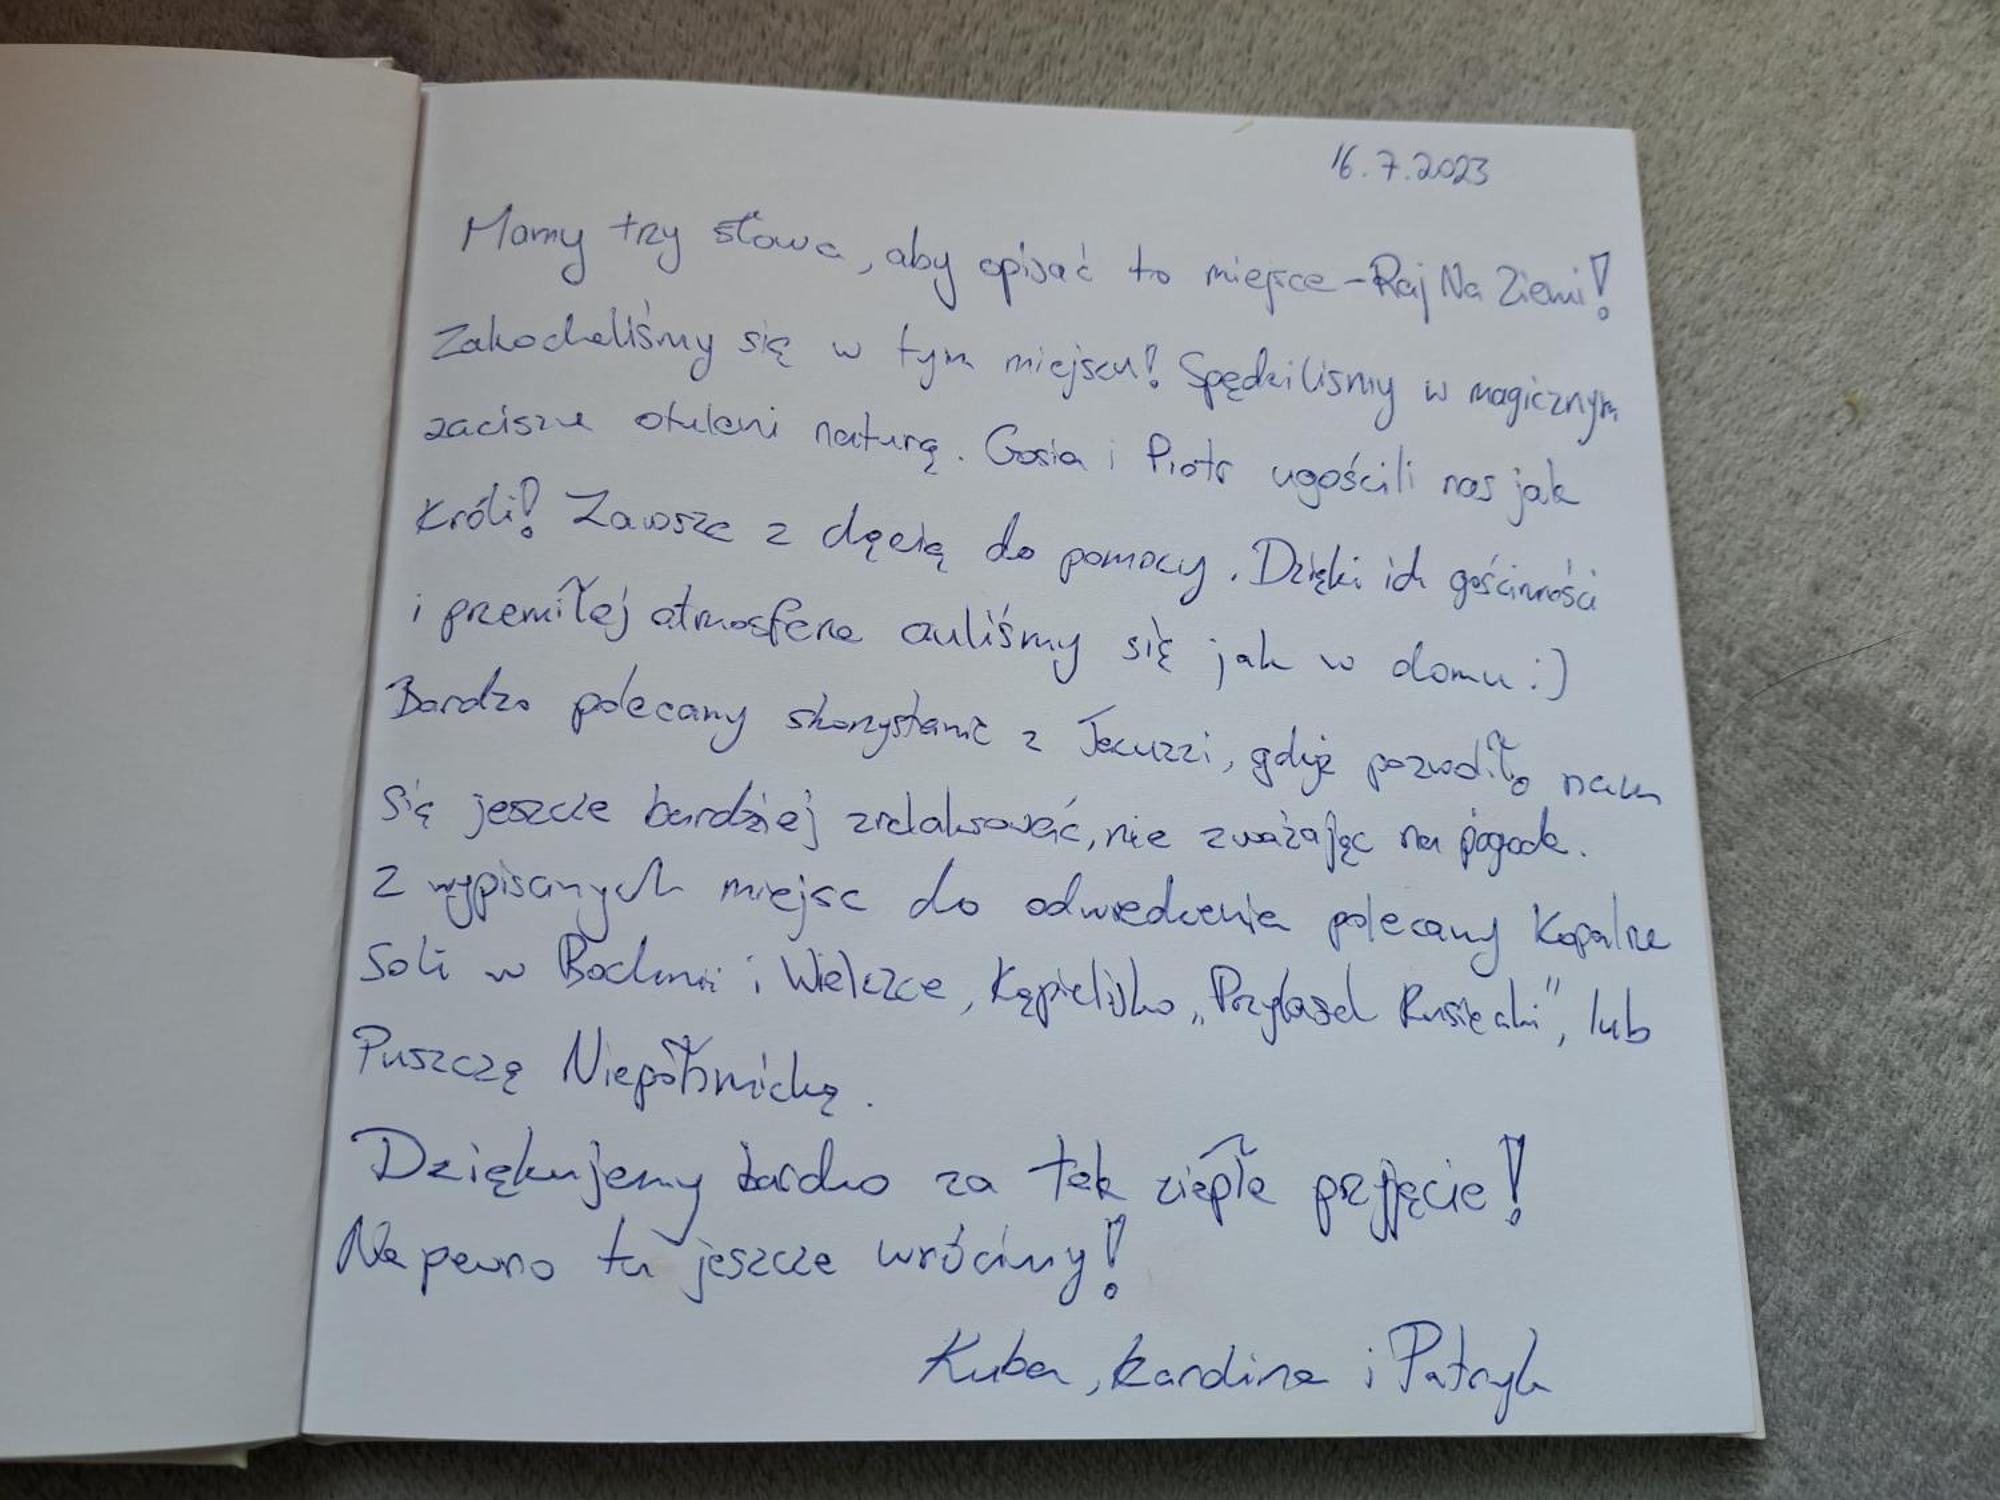 16.7.2023
Mamy trzy słowa, aby opisać to miejsce - Raj Na Ziemi!
Zakochaliśmy się w tym miejscu! Spędziliśmy w magicznym
zaciszu otuleni naturą. Gosia i Piotr ugościli nas jak
Króli! Zawsze z chęcią do pomocy. Dzięki ich gościnności
i przemiłej atmosferze czuliśmy się jak w domu :)
Bardzo polecamy skorzystanie z Jacuzzi, gdyż pozwoliło nam
się jeszcze bardziej zrelaksować, nie zważając na pogodę.
Z wypisanych miejsc do odwiedzenia polecamy Kopalnie
Soli w Bochni i Wieliczce, Kąpielisko „Przylasek Rusiecki", lub
Puszczę Niepołomicką.
Dziękujemy bardzo za tak ciepłe przyjęcie!
Na pewno tu jeszcze wrócimy!
Kuba, Karolina i Patryk